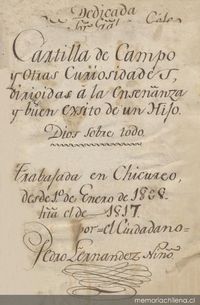 Dedicada
Cartilla de Campo
y Otras Curiosidades,
dirigidas á la Enseñanza
y buen exsito de un Hijo.
Dios sobre todo
Trabajada en Chicureo,
desde 1º de Enero de 1808.
hta el de 1817.
por=el Ciudadano=
Pedro Fernandez Niño
memoriachilena.cl